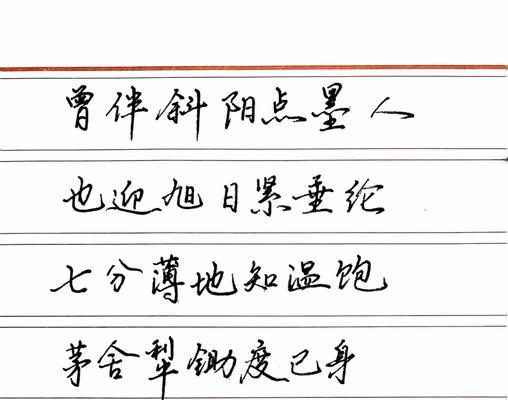 曾伴斜阳点墨人
也迎旭日累垂纶
七分薄地知温饱
茅舍犁锄度已身